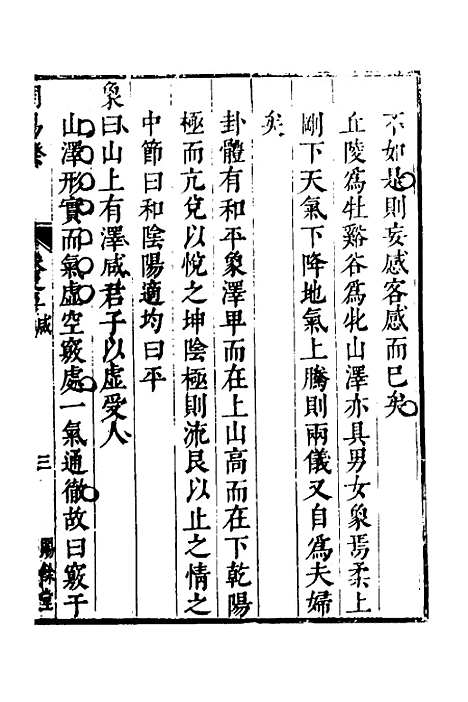 不如是則妄感客感而已矣
丘陵爲牡谿谷爲牝山澤亦具男女象焉柔上
剛下天氣下降地氣上騰則兩儀又自爲夫婦
矣
卦體有和平象澤卑而在上山高而在下乾陽
極而亢兌以悅之坤陰極則流艮以止之情之
中節曰和陰陽適均曰平
象曰山上有澤咸君子以虛受人
山澤形實而氣虛空竅處一氣通徹故曰竅于
咸
三
賜餘堂